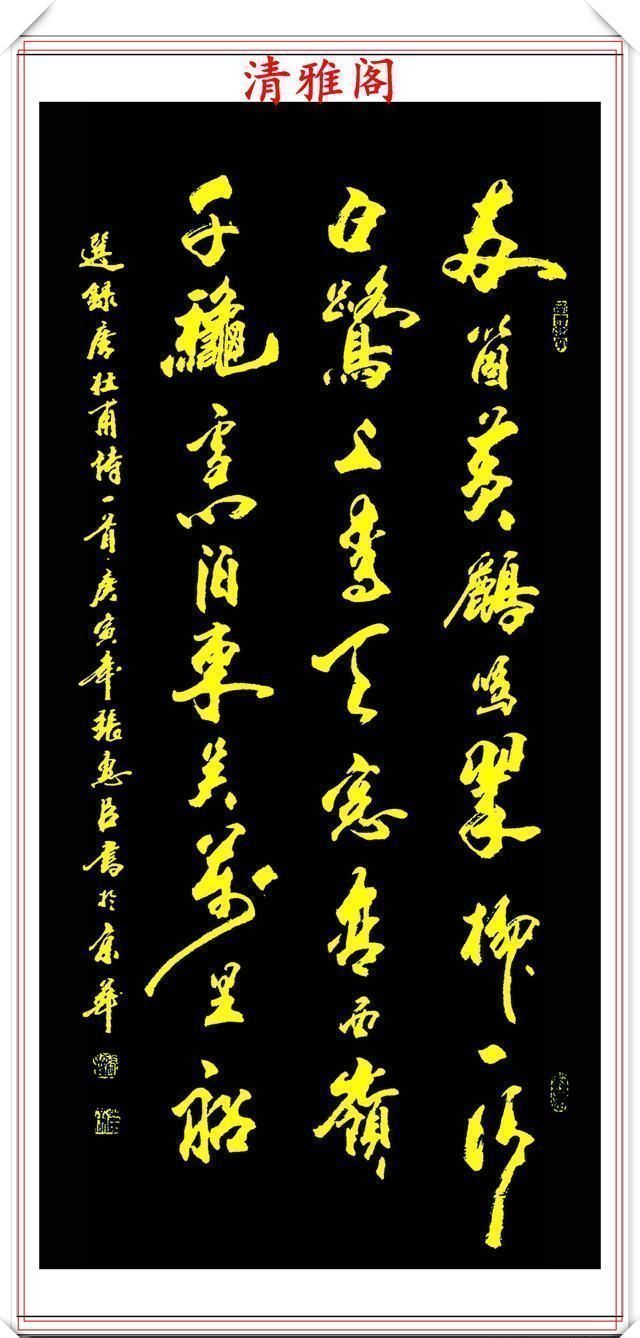 清雅阁
兩箇黄鸝鳴翠柳一行
白鷺上青天窓含西嶺
千龝雪门泊東吴萬里船
選録唐杜甫詩一首庚寅年張惠臣書於京華